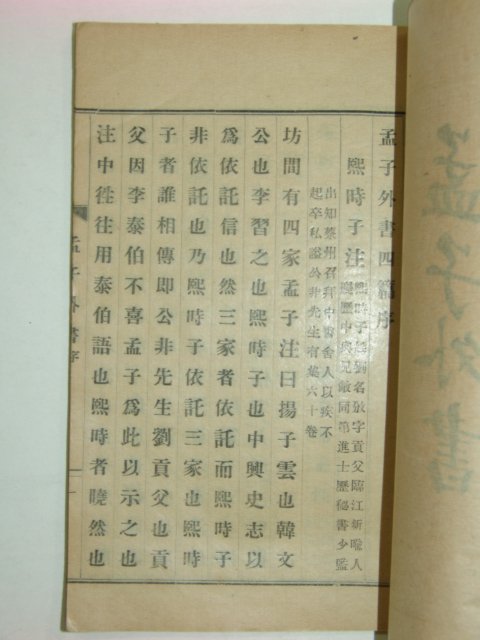 孟子外書四篇序
熙時子注
熙時子姓劉名攽字貢父臨江新喻人
慶歷中與兄敞同第進士歷秘書少監
出知蔡州召拜中書舍人以疾不
起卒私謚公非先生有集六十卷
坊間有四家孟子注曰揚子雲也韓文
公也李習之也熙時子也中興史志以
爲依託信也然三家者依託而熙時子
非依託也乃熙時子依託三家也熙時
子者誰相傳即公非先生劉貢父也貢
父因李泰伯不喜孟子爲此以示之也
注中徃往用泰伯語也熙時者曉然也
孟子外書序
一